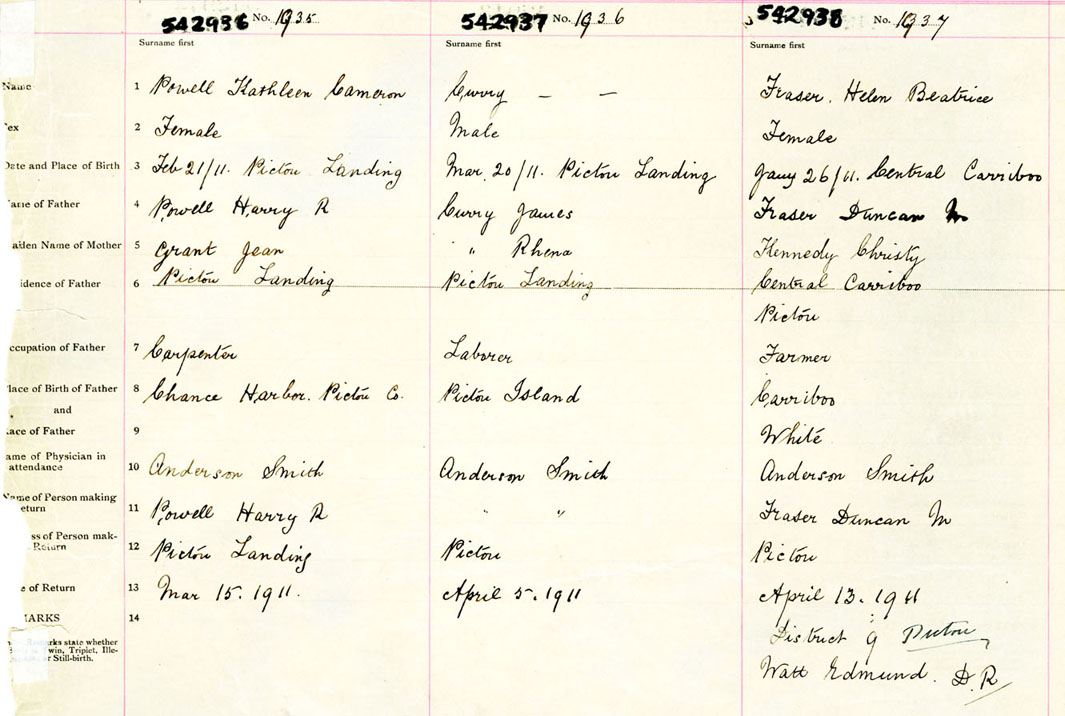 542936 No. 1935
542937 No. 1936
542938 No. 1937
Surname first
Surname first
Surname first
Name 1 Powell Kathleen Cameron
Curry — —
Fraser. Helen Beatrice
ex 2 Female
Male
Female
Date and Place of Birth 3 Feb 21/11. Pictou Landing
Mar. 20/11. Pictou Landing
Jany 26/11. Central Carriboo
ame of Father 4 Powell Harry R
Curry James
Fraser Duncan M
aiden Name of Mother 5 Grant Jean
" Rhena
Kennedy Christy
idence of Father 6 Pictou Landing
Pictou Landing
Central Carriboo
Pictou
ccupation of Father 7 Carpenter
Laborer
Farmer
lace of Birth of Father 8 Chance Harbor. Pictou Co.
Pictou Island
Carriboo
and
ace of Father 9
White
ame of Physician in
attendance 10 Anderson Smith
Anderson Smith
Anderson Smith
Name of Person making
eturn 11 Powell Harry R
" "
Fraser Duncan M
ss of Person mak-
Return 12 Pictou Landing
Pictou
Pictou
e of Return 13 Mar 15. 1911.
April 5. 1911
April 13. 1911
MARKS 14
Remarks state whether
win, Triplet, Ille-
or Still-birth.
District of Pictou
Watt Edmund. D.R